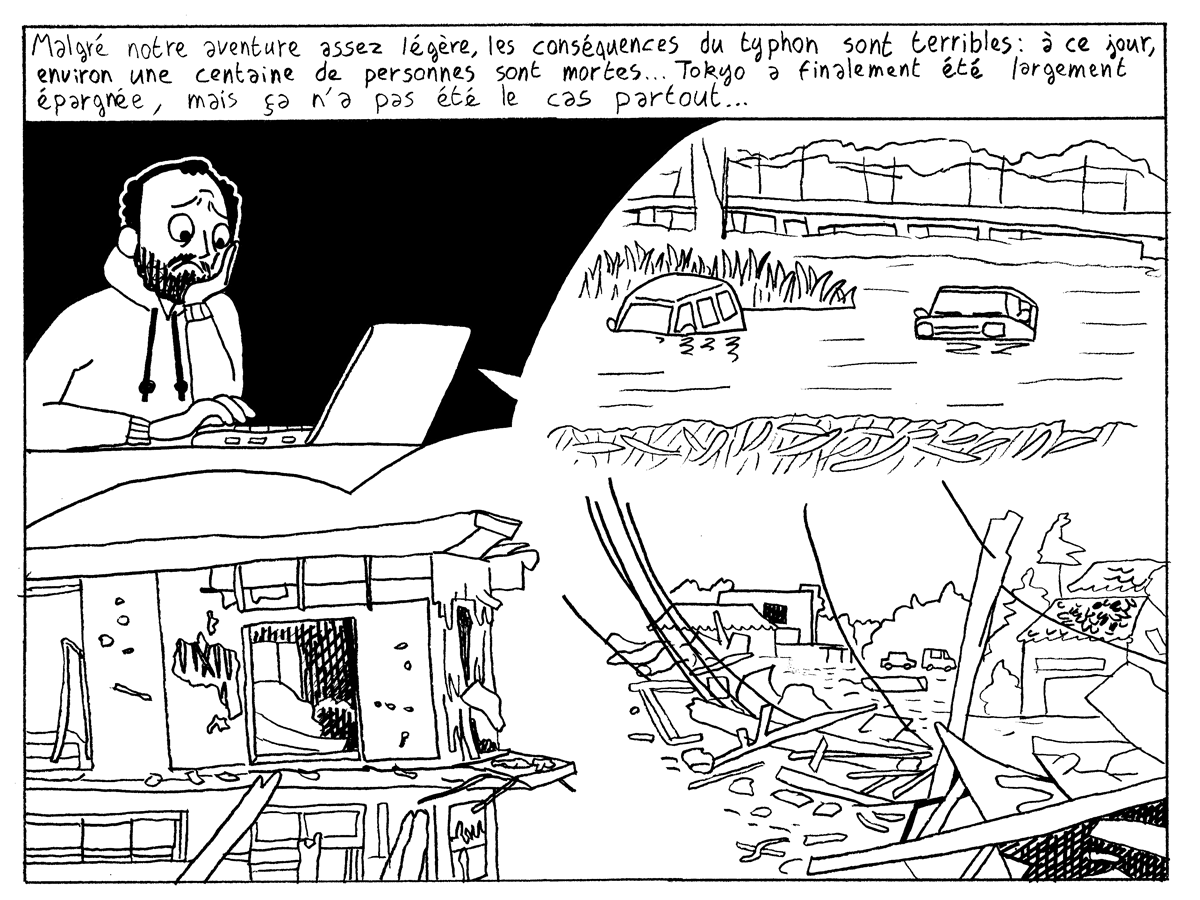 Malgré notre aventure assez légère, les conséquences du typhon sont terribles : à ce jour,
environ une centaine de personnes sont mortes... Tokyo a finalement été largement
épargnée, mais ça n'a pas été le cas partout...